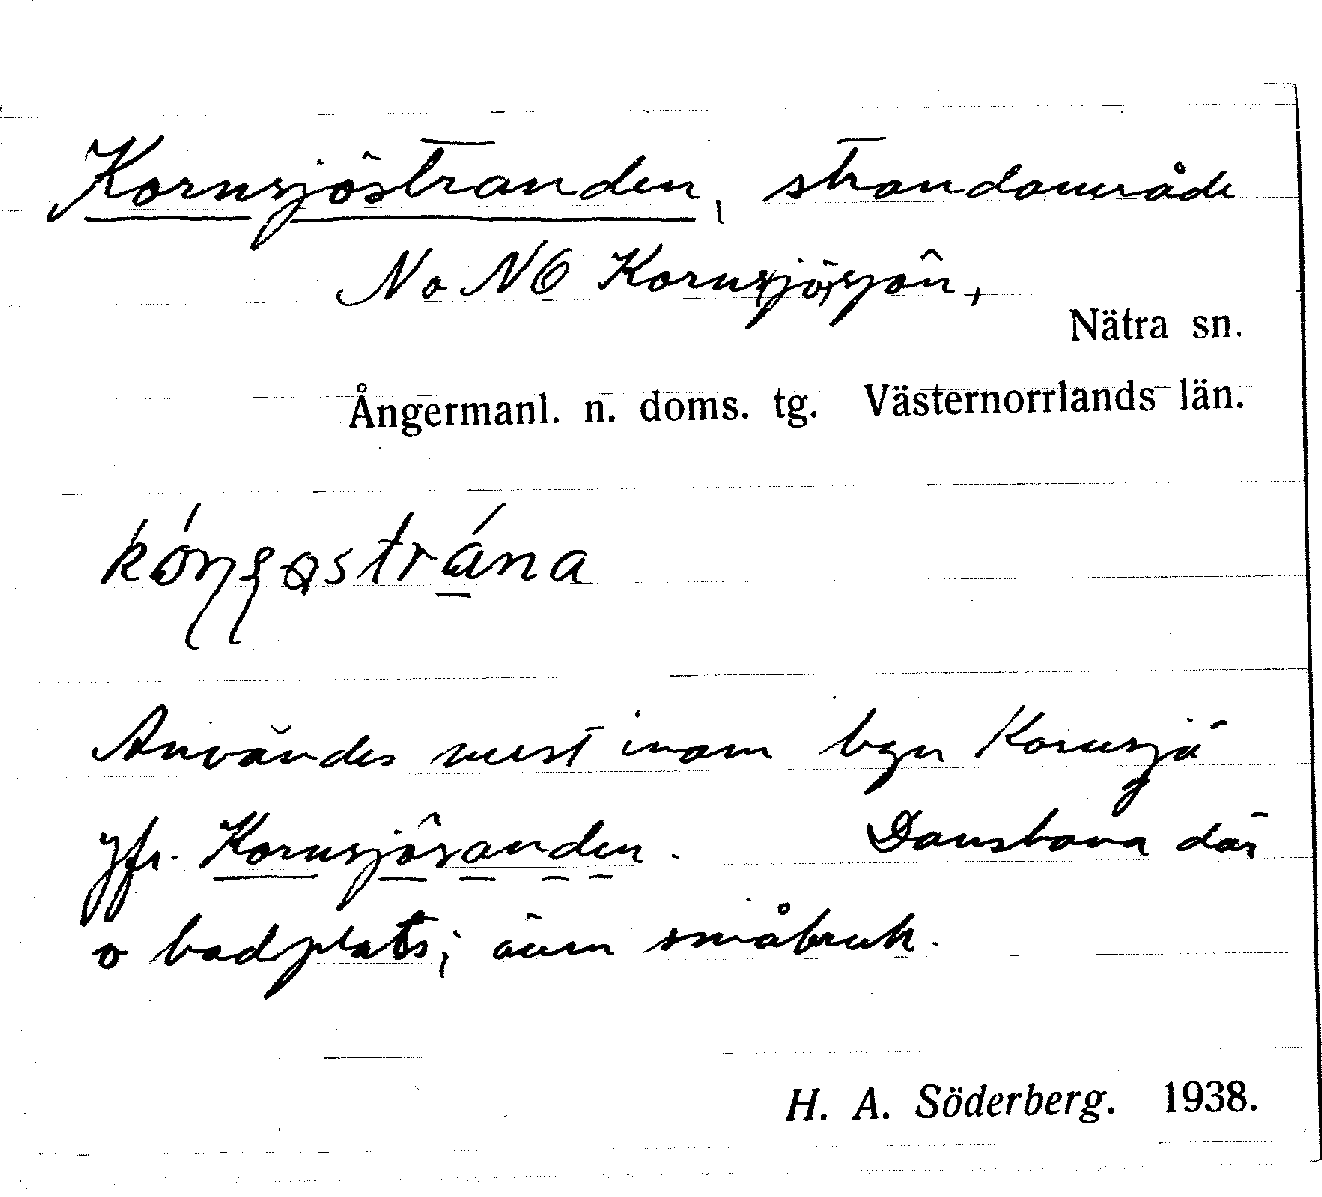 Kornsjöstranden, strandområde
N o NÖ Kornsjösjön,
Nätra sn.
Ångermanl. n. doms. tg. Västernorrlands län.
Användes mest inom byn Kornsjö
jfr. Kornsjösanden. Dansbana där
o badplats; även småbruk.
H. A. Söderberg. 1938.